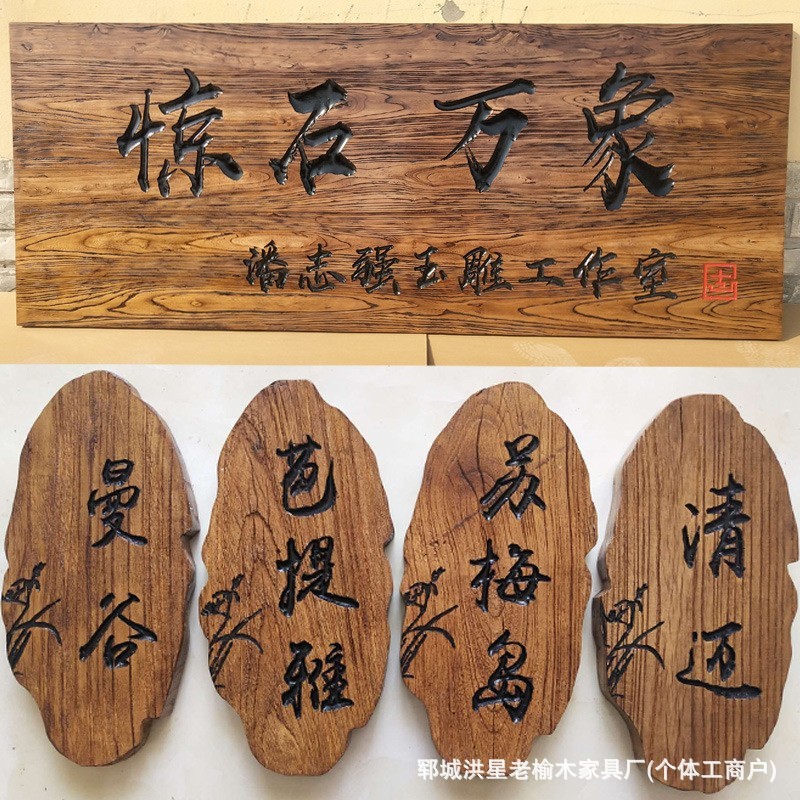 惊石万象
潘志强玉雕工作室
曼谷
芭提雅
苏梅岛
清迈
郓城洪星老榆木家具厂(个体工商户)